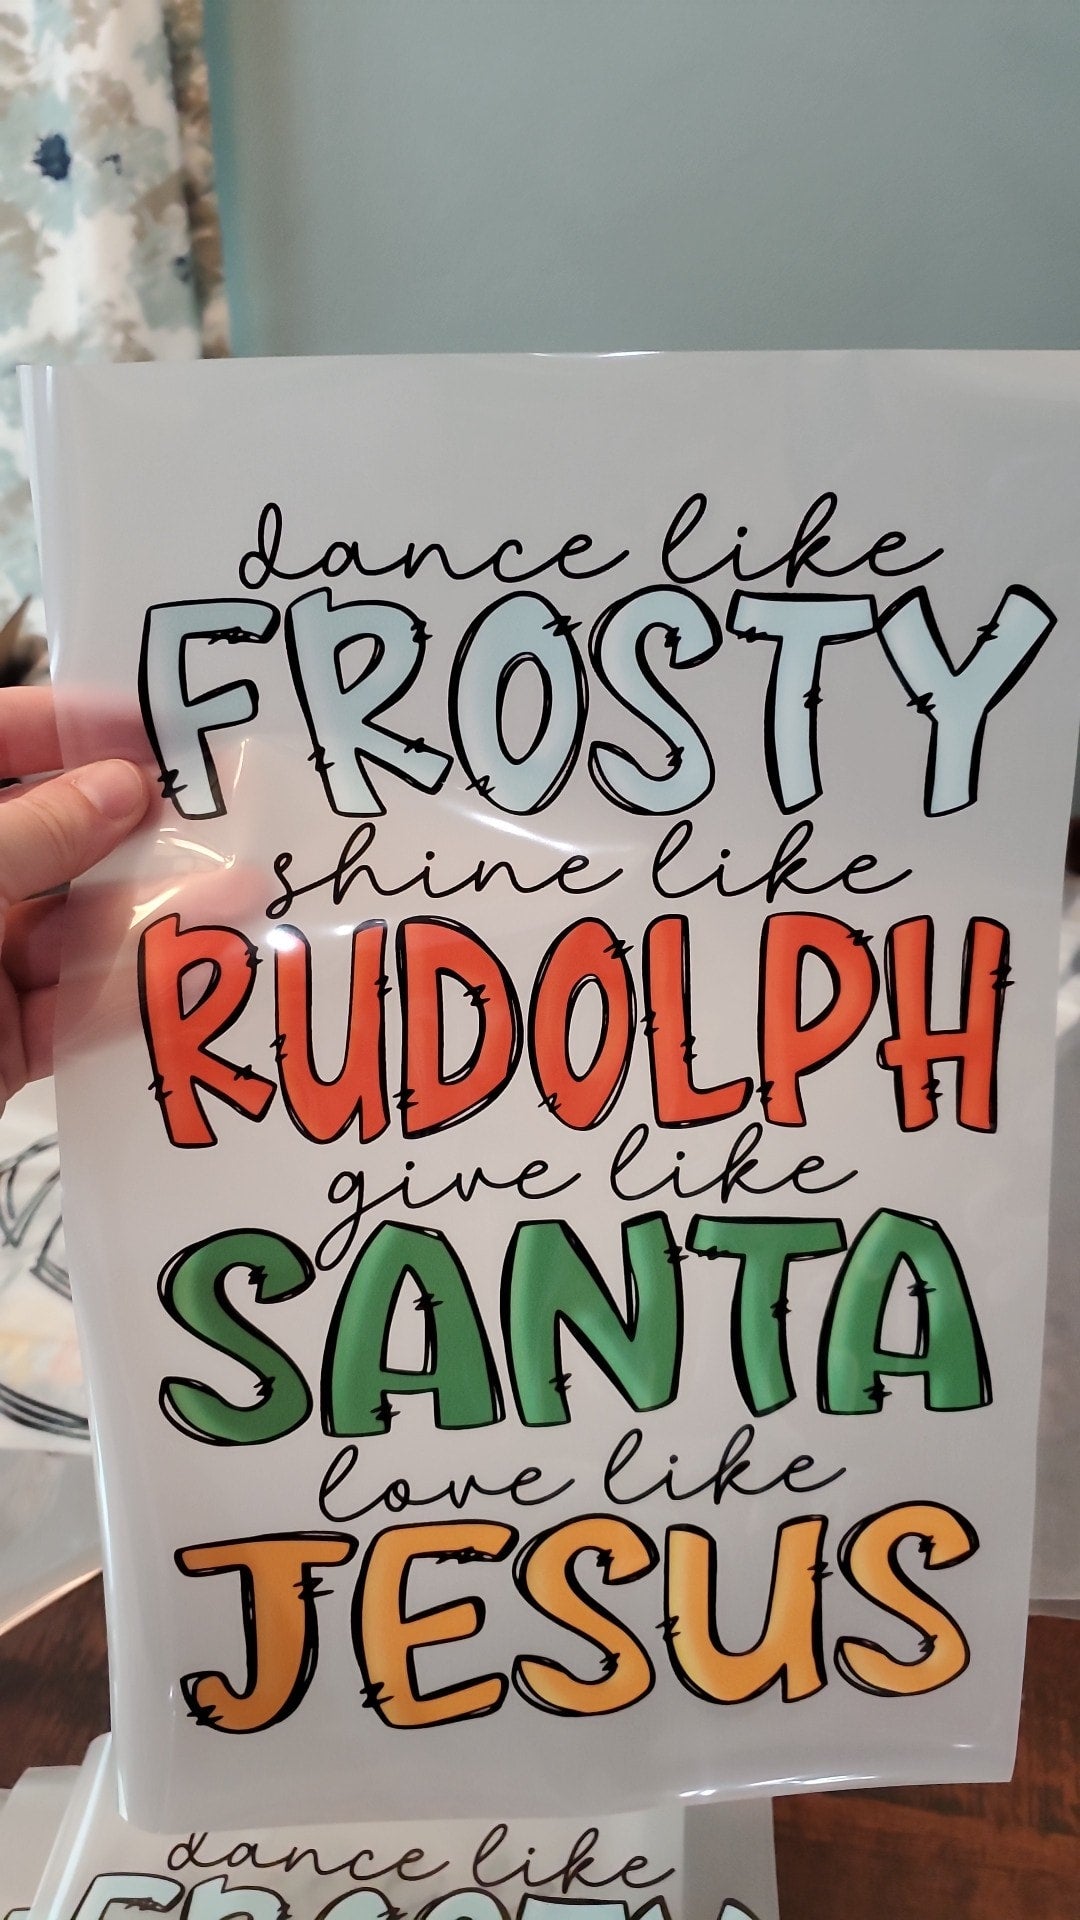 dance like
FROSTY
shine like
RUDOLPH
give like
SANTA
love like
JESUS
dance like
FROSTY